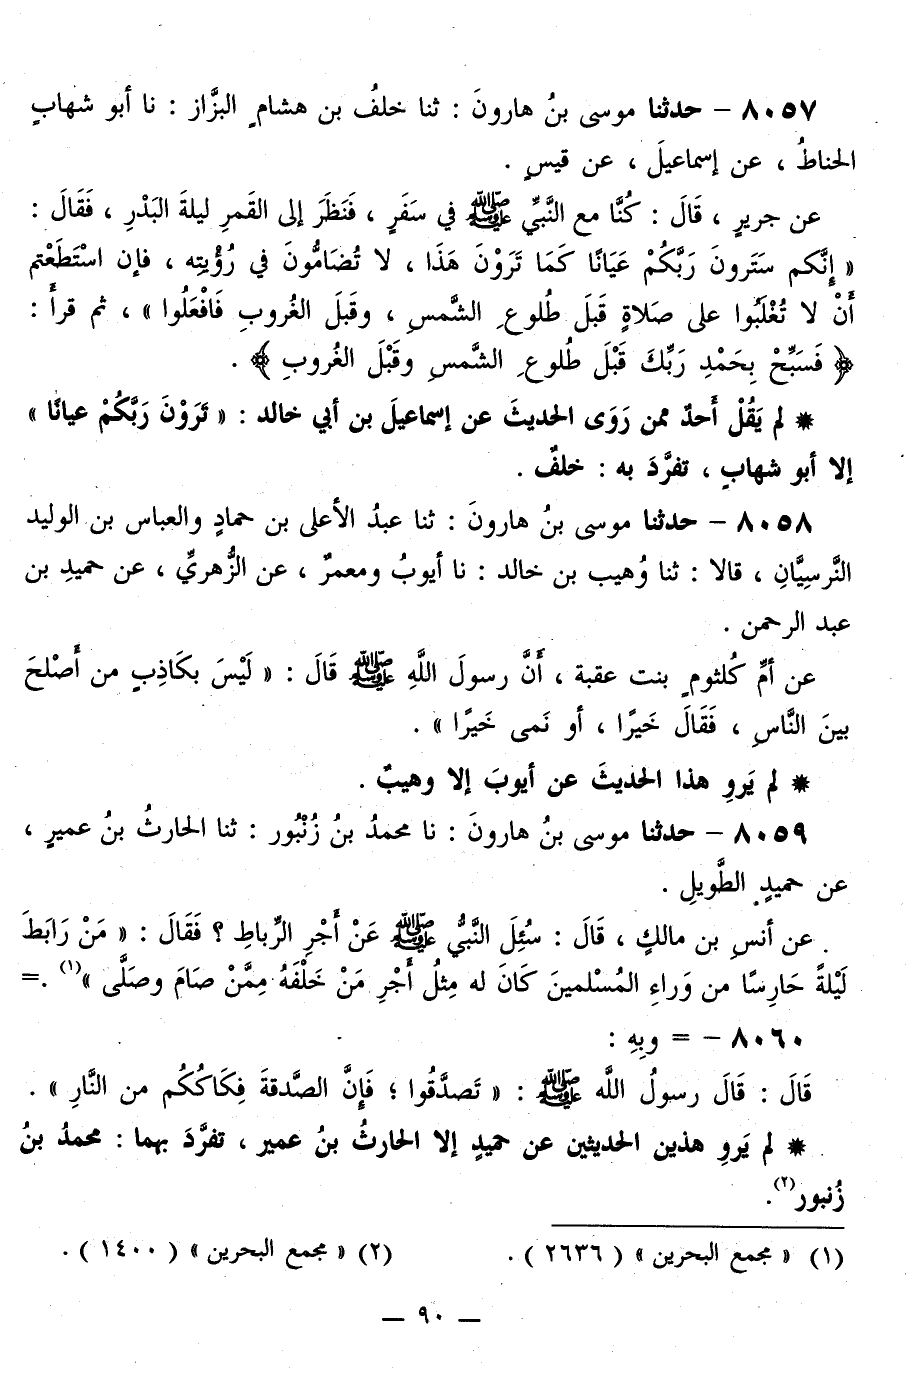 ٨٠٥٧ – حدثنا موسى بنُ هارونَ : ثنا خلفُ بن هشامٍ البزَّاز : نا أبو شهابٍ
الحناطُ ، عن إسماعيلَ ، عن قيسٍ .
عن جريرٍ ، قَالَ : كُنَّا مع النَّبيِّ ﷺ في سَفَرٍ ، فَنَظَرَ إلى القَمرِ ليلةَ البَدْرِ ، فَقَالَ :
« إِنَّكم سَتَرونَ رَبَّكُمْ عَيَانًا كَمَا تَرَوْنَ هَذَا ، لا تُضَامُّونَ في رُؤْيتِه ، فإن اسْتَطَعْتم
أَنْ لا تُغْلَبُوا على صَلاةٍ قَبلَ طُلوعِ الشَّمسِ ، وقَبلَ الغُروبِ فَافْعَلُوا » ، ثم قرأَ :
﴿ فَسَبِّحْ بِحَمْدِ رَبِّكَ قَبْلَ طُلوعِ الشَّمسِ وقَبْلَ الغُروبِ ﴾ .
* لم يَقُلْ أَحدٌ ممن رَوَى الحديثَ عن إسماعيلَ بن أبي خالد : « تَرَوْنَ رَبَّكُمْ عيانًا »
إلا أبو شهابٍ ، تفرَّدَ به : خلفٌ .
٨٠٥٨ – حدثنا موسى بنُ هارونَ : ثنا عبدُ الأعلى بن حمادٍ والعباس بن الوليد
النَّرسِيَّانِ ، قالا : ثنا وُهيب بن خالد : نا أيوبُ ومعمرٌ ، عن الزُّهريِّ ، عن حميدِ بن
عبد الرحمن .
عن أمِّ كُلثومٍ بنت عقبة ، أَنَّ رسولَ اللَّهِ ﷺ قَالَ : « لَيْسَ بكَاذِبٍ من أَصْلحَ
بينَ النَّاسِ ، فَقَالَ خَيرًا ، أو نَمى خَيرًا » .
* لم يَروِ هذا الحديثَ عن أيوبَ إلا وهيبٌ .
٨٠٥٩ – حدثنا موسى بنُ هارونَ : نا محمدُ بنُ زُنْبُور : ثنا الحارثُ بنُ عميرٍ ،
عن حميدٍ الطَّويلِ .
عن أنسِ بن مالكٍ ، قَالَ : سُئِلَ النَّبيُّ ﷺ عَنْ أَجْرِ الرِّباطِ ؟ فَقَالَ : « مَنْ رَابَطَ
لَيْلةً حَارِسًا من وَراءِ المُسْلمينَ كَانَ له مِثلُ أَجْرِ مَنْ خَلْفَهُ مِمَّنْ صَامَ وصَلَّى »(١) .=
٨٠٦٠ – = وبِهِ :
قَالَ : قَالَ رسولُ اللَّه ﷺ : « تَصدَّقُوا ؛ فَإِنَّ الصَّدقةَ فِكَاكُكُم من النَّارِ » .
* لم يَروِ هذين الحديثين عن حميدٍ إلا الحارثُ بنُ عمير ، تفرَّدَ بهما : محمدُ بنُ
زُنبور(٢).
(١) « مجمع البحرين » ( ٢٦٣٦ ) . (٢) « مجمع البحرين » ( ١٤٠٠ ) .
— ٩٠ —